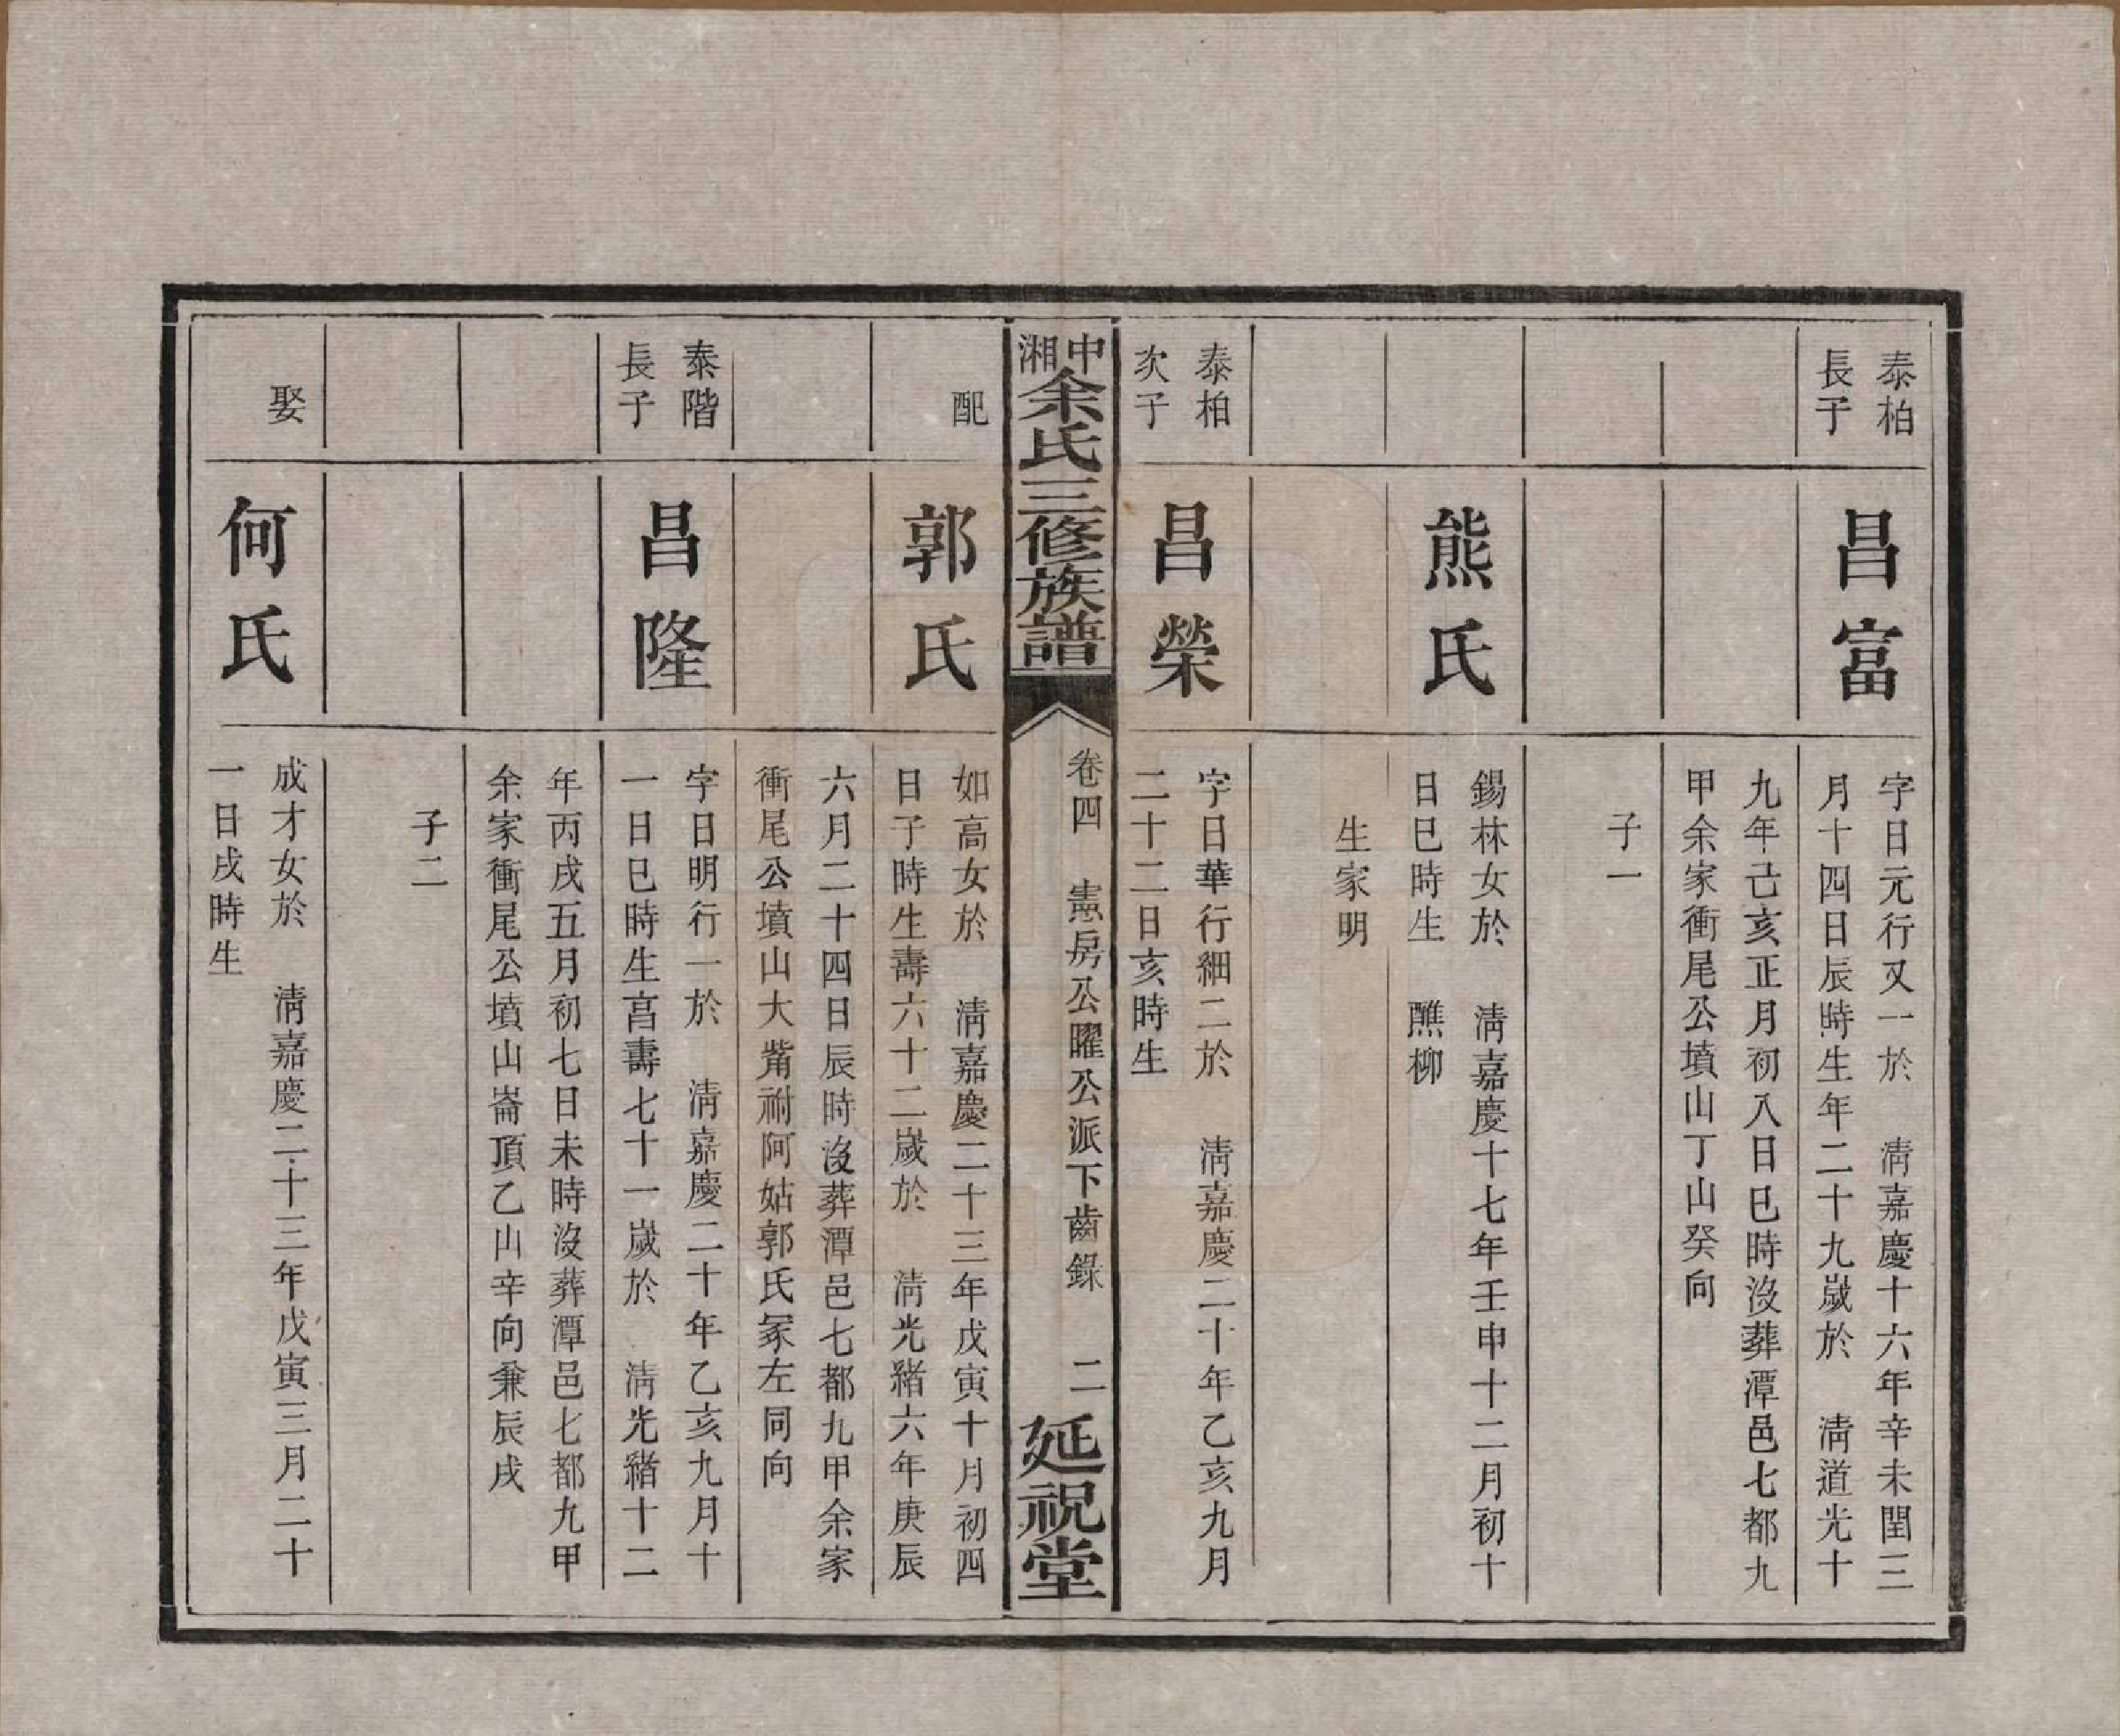 泰柏
長子
昌富
字日元行又一於　淸嘉慶十六年辛未閏三
月十四日辰時生年二十九歲於　淸道光十
九年己亥正月初八日巳時沒葬潭邑七都九
甲余家衝尾公墳山丁山癸向
子一
熊氏
錫林女於　淸嘉慶十七年壬申十二月初十
日巳時生　醮柳
生家明
泰柏
次子
昌榮
字日華行細二於　淸嘉慶二十年乙亥九月
二十二日亥時生
中湘余氏三修族譜
卷四　憲房公曜公派下齒錄　二
延祝堂
配
郭氏
如高女於　淸嘉慶二十三年戊寅十月初四
日子時生壽六十二歲於　淸光緒六年庚辰
六月二十四日辰時沒葬潭邑七都九甲余家
衝尾公墳山大觜祔阿姑郭氏冢左同向
泰階
長子
昌隆
字日明行一於　淸嘉慶二十年乙亥九月十
一日巳時生享壽七十一歲於　淸光緒十二
年丙戌五月初七日未時沒葬潭邑七都九甲
余家衝尾公墳山崙頂乙山辛向兼辰戌
子二
娶
何氏
成才女於　淸嘉慶二十三年戊寅三月二十
一日戌時生